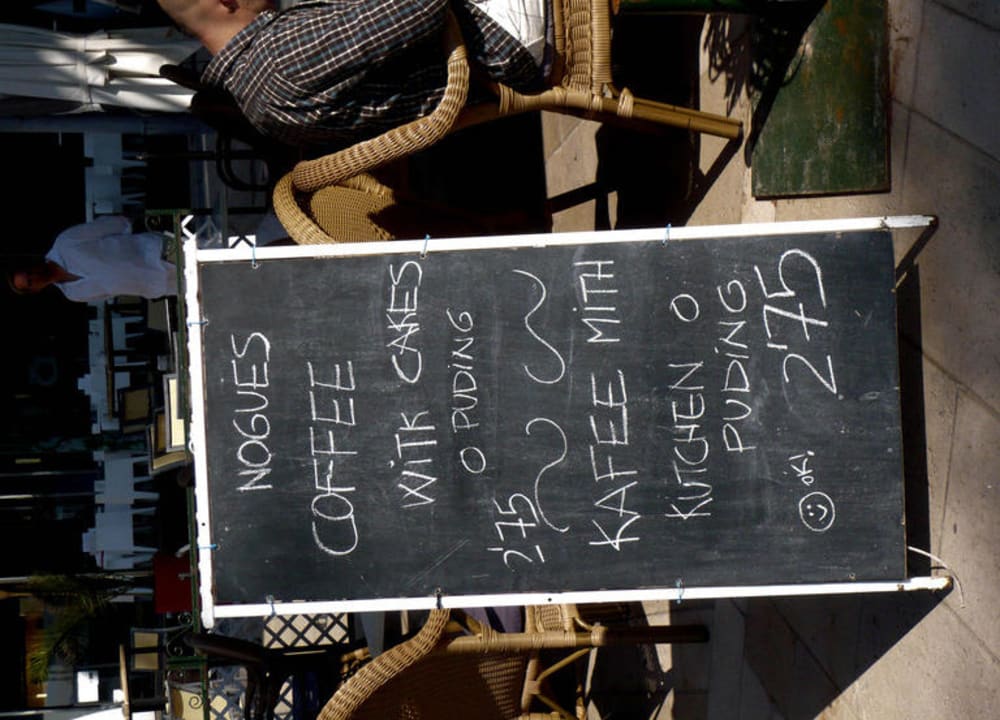 NOGUES
COFFEE
WITK CAKES
O PUDING
2'75
KAFEE MITH
KUTCHEN O
PUDING
2'75
OK!